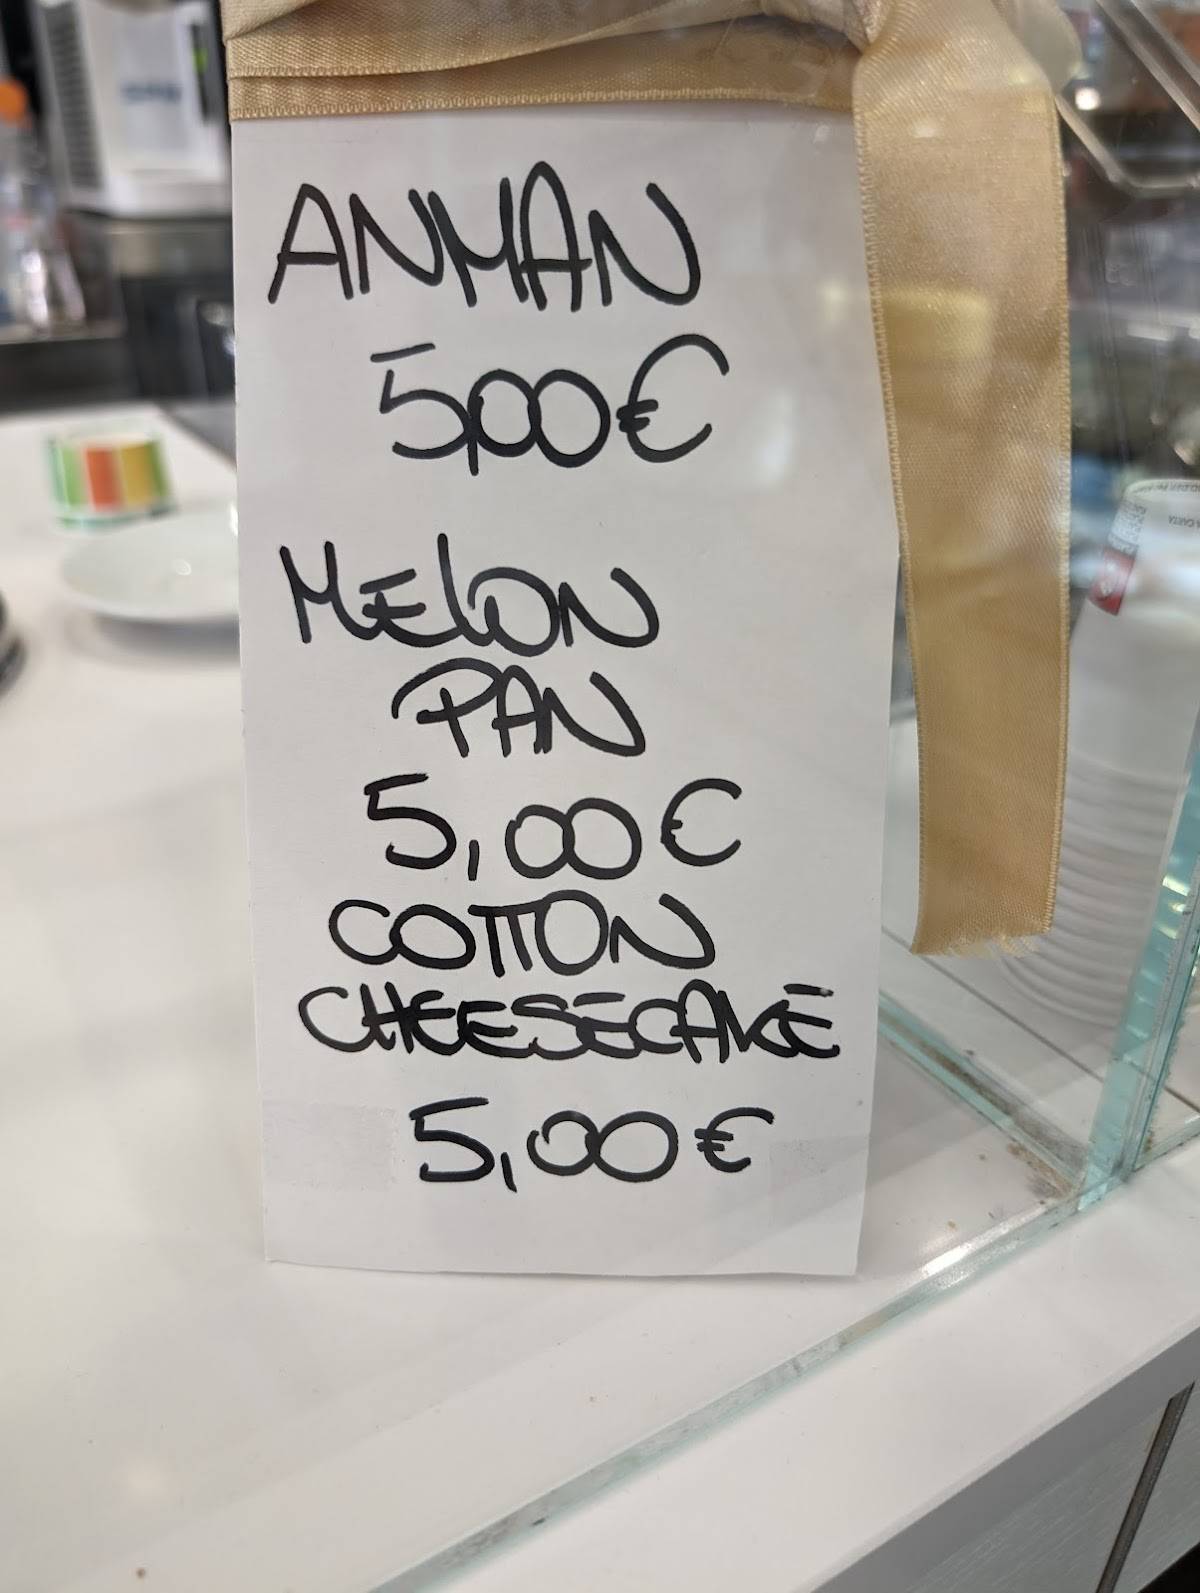 ANMAN
5,00€
MELON
PAN
5,00€
COTTON
CHEESECAKE
5,00€